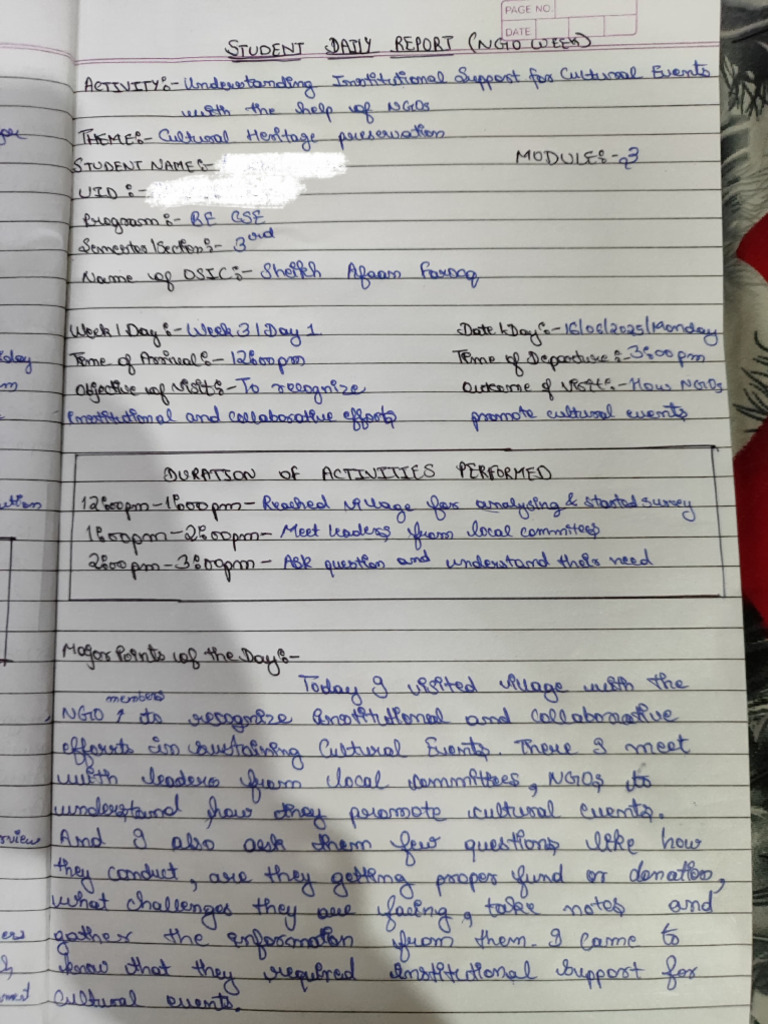 PAGE NO.
DATE
STUDENT DAILY REPORT (NGO WEEK)
ACTIVITY:- Understanding Institutional Support for Cultural Events
with the help of NGOs
THEME:- Cultural Heritage preservation
STUDENT NAME:- MODULE:- 3
UID:-
Program:- BE CSE
Semester/Section:- 3rd
Name of DSIC:- Sheikh Afaan Farooq
Week/Day:- Week 3/Day 1 Date & Day:- 16/06/2025/Monday
Time of Arrival:- 12:00pm Time of Departure:- 3:00pm
Objective of Visit:- To recognize Outcome of Visit:- How NGOs
institutional and collaborative efforts promote cultural events
DURATION OF ACTIVITIES PERFORMED
12:00pm-1:00pm- Reached village for analysing & started survey
1:00pm-2:00pm- Meet leaders from local committees
2:00pm-3:00pm- Ask question and understand their need
Major Points of the Day:-
Today I visited village with the
NGO members to recognize institutional and collaborative
efforts in sustaining Cultural Events. There I meet
with leaders from local committees, NGOs to
understand how they promote cultural events.
And I also ask them few questions like how
they conduct, are they getting proper fund or donation,
what challenges they are facing, take notes and
gather the information from them. I came to
know that they required institutional support for
cultural events.